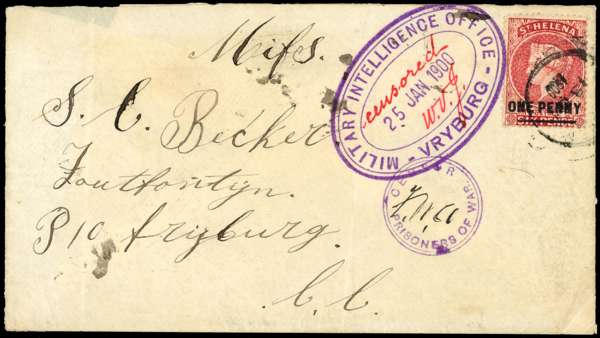 Miss.
S. C. Becker
P/O Vryburg.
C. C.
MILITARY INTELLIGENCE OFFICE
censored
25 JAN 1900
- VRYBURG -
CENSOR
PRISONERS OF WAR
ST HELENA
ONE PENNY